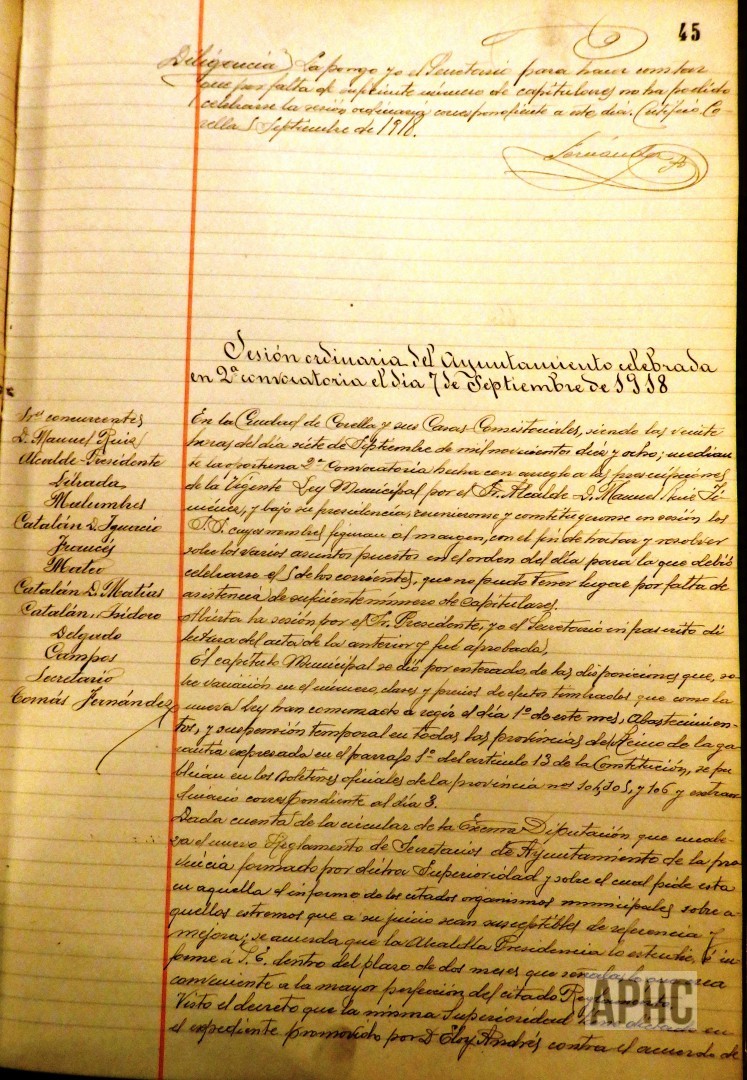 45
Diligencia) La pongo yo el Secretario para hacer constar
que por falta de suficiente número de capitulares no ha podido
celebrarse la sesión ordinaria correspondiente a este día. Certifico Co-
rella 5 Septiembre de 1918.
Fernández
Sesión ordinaria del Ayuntamiento celebrada
en 2ª convocatoria el día 7 de Septiembre de 1918
Sres concurrentes
D. Manuel Ruiz
Alcalde-Presidente
Delgado
Catalán D. Ignacio
Francés
Mateo
Catalán D. Matías
Catalán, Isidoro
Delgado
Campos
Secretario
Tomás Fernández
En la Ciudad de Corella y sus Casas Consistoriales, siendo las veinte
horas del día siete de Septiembre de mil novecientos diez y ocho; median-
te la oportuna 2ª Convocatoria hecha con arreglo a las prescripciones
de la Vigente Ley Municipal por el Sr. Alcalde D. Manuel Ruiz Ji-
ménez, y bajo su presidencia, reunieronse y constituyeronse en sesión los
S.S. cuyos nombres figuran al margen, con el fin de tratar y resolver
sobre los varios asuntos puestos en el orden del día para la que debió
celebrarse el 5 de los corrientes, que no pudo tener lugar por falta de
asistencia de suficiente número de Capitulares.
Abierta la sesión por el Sr. Presidente, yo el Secretario infrascrito di
lectura del acta de la anterior y fué aprobada.
El capítulo Municipal se dió por enterado, de las disposiciones que, so-
bre variación en el número, clases y precios de efectos timbrados que como la
nueva ley han comenzado a regir el día 1º de este mes, Abastecimien-
tos, y suspensión temporal en todas las provincias del Reino de la ga-
rantía expresada en el parrafo 1º del artículo 13 de la Constitución, se pu-
blican en los Boletines oficiales de la provincia nos 104, 105, y 106 y extraor-
dinario correspondiente al día 3.
Dada cuenta de la circular de la Excma Diputación que encabe-
za el nuevo Reglamento de Secretarios de Ayuntamiento de la pro-
vincia formado por dicha Superioridad y sobre el cual pide esta
en aquella el informe de los citados organismos municipales sobre a-
quellos estremos que a su juicio sean susceptibles de referencia y
mejora; se acuerda que la Alcaldía Presidencia lo estudie, é in-
forme á S.E. dentro del plazo de dos meses que señala lo que crea
conveniente a la mayor perfección del citado Reglamento.
Visto el decreto que la misma Superioridad ha dictado en
el expediente promovido por D. Eloy Andrés contra el acuerdo de
APHC